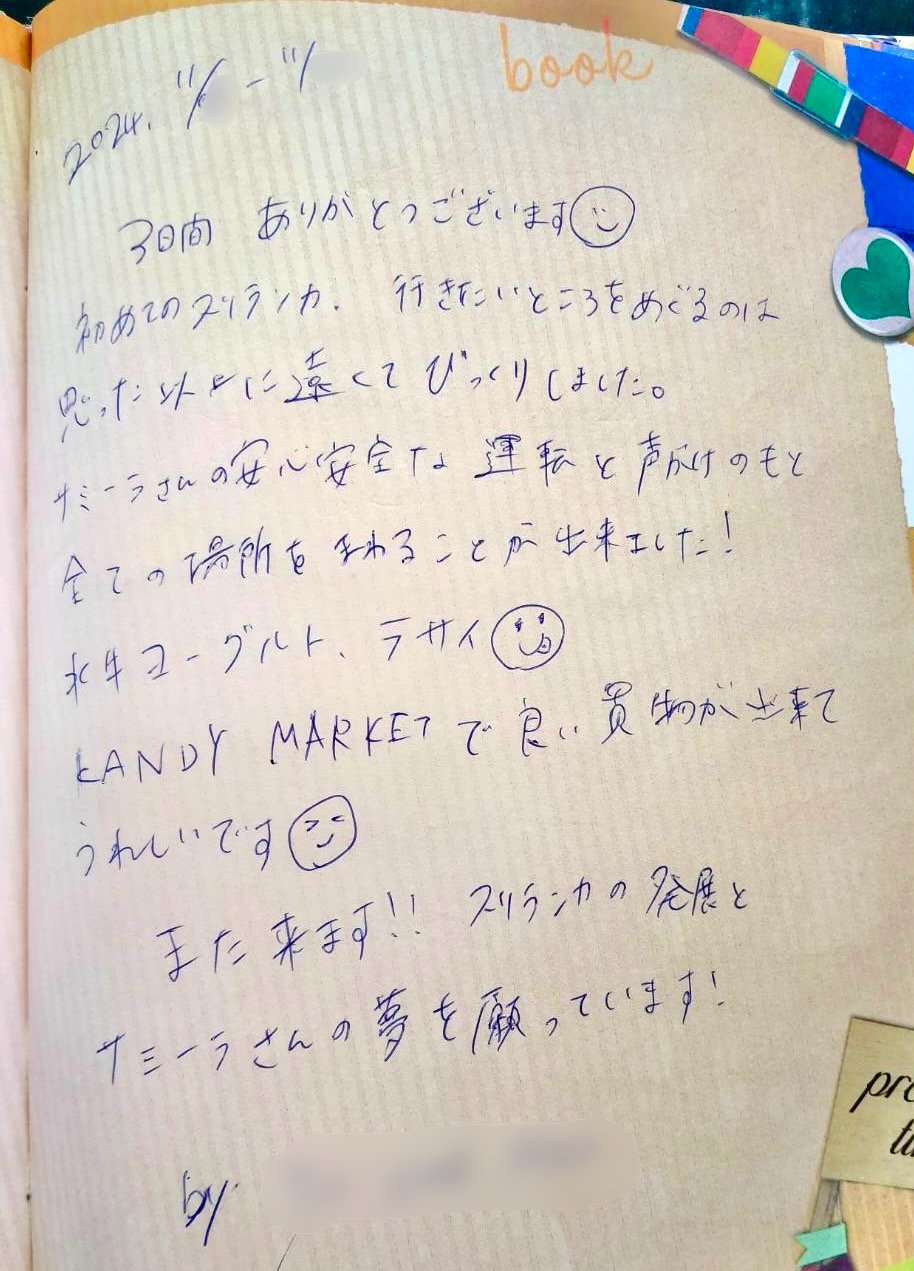 book
2024. 11/ - 11/
3日間 ありがとうございます
初めてのスリランカ. 行きたいところをめぐるのは
思った以上に遠くてびっくりしました。
サミーラさんの安心安全な運転と声がけのもと
全ての場所をまわることが出来ました!
水牛ヨーグルト、ラサイ
KANDY MARKETで良い買物が出来て
うれしいです
また来ます!! スリランカの発展と
サミーラさんの夢を願っています!
by